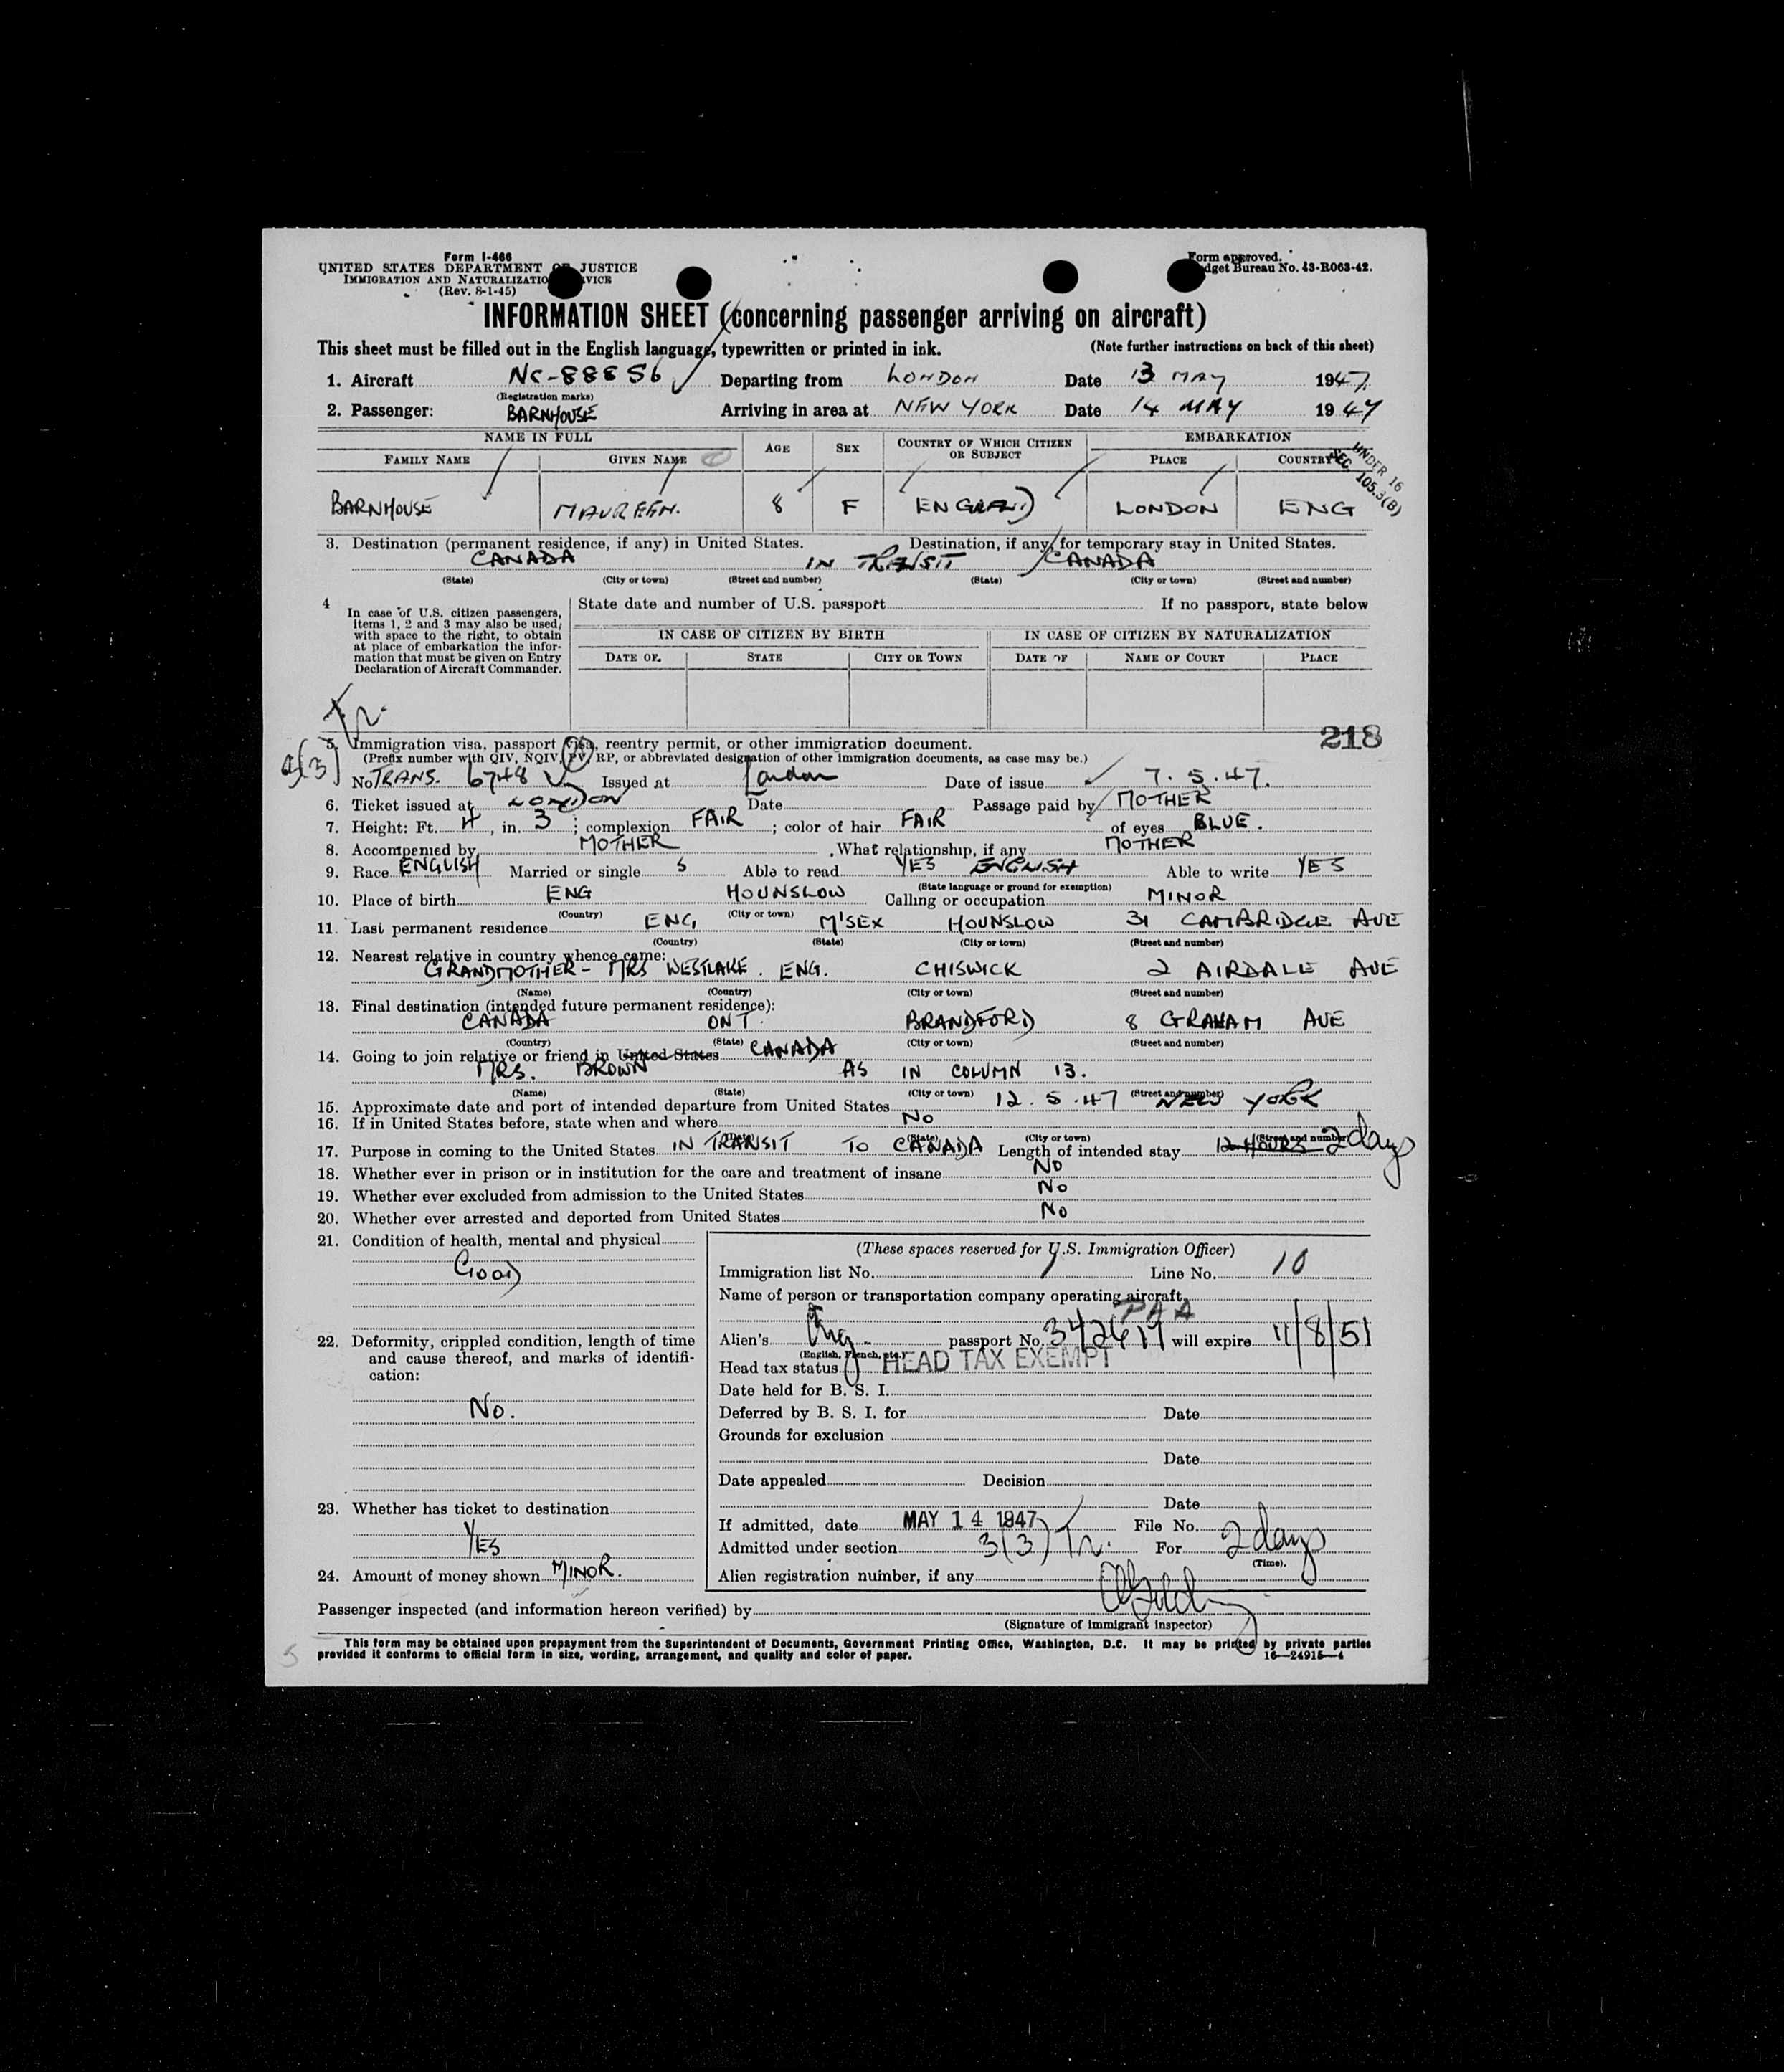 Form I-466
UNITED STATES DEPARTMENT OF JUSTICE
IMMIGRATION AND NATURALIZATION SERVICE
(Rev. 8-1-45)
Form approved.
Budget Bureau No. 43-R063-42.
INFORMATION SHEET (concerning passenger arriving on aircraft)
This sheet must be filled out in the English language, typewritten or printed in ink. (Note further instructions on back of this sheet)
1. Aircraft NC-88856 Departing from LONDON Date 13 MAY 1947
(Registration marks)
2. Passenger: BARNHOUSE Arriving in area at NEW YORK Date 14 MAY 1947
NAME IN FULL AGE SEX COUNTRY OF WHICH CITIZEN OR SUBJECT EMBARKATION
FAMILY NAME GIVEN NAME PLACE COUNTRY
UNDER 16
SEC. 105.3(B)
BARNHOUSE MAUREEN. 8 F ENGLAND LONDON ENG
3. Destination (permanent residence, if any) in United States. Destination, if any, for temporary stay in United States.
CANADA IN TRANSIT CANADA
(State) (City or town) (Street and number) (State) (City or town) (Street and number)
4 In case of U.S. citizen passengers, items 1, 2 and 3 may also be used, with space to the right, to obtain at place of embarkation the information that must be given on Entry Declaration of Aircraft Commander.
State date and number of U.S. passport If no passport, state below
IN CASE OF CITIZEN BY BIRTH IN CASE OF CITIZEN BY NATURALIZATION
DATE OF STATE CITY OR TOWN DATE OF NAME OF COURT PLACE
218
5. Immigration visa, passport visa, reentry permit, or other immigration document.
(Prefix number with QIV, NQIV, PV, RP, or abbreviated designation of other immigration documents, as case may be.)
No. TRANS. 6748 Issued at London Date of issue 7.5.47.
6. Ticket issued at LONDON Date Passage paid by MOTHER
7. Height: Ft. 4, in. 3; complexion FAIR; color of hair FAIR of eyes BLUE.
8. Accompanied by MOTHER What relationship, if any MOTHER
9. Race ENGLISH Married or single S Able to read YES ENGLISH Able to write YES
(State language or ground for exemption)
10. Place of birth ENG HOUNSLOW Calling or occupation MINOR
(Country) (City or town)
11. Last permanent residence ENG, M'SEX HOUNSLOW 31 CAMBRIDGE AVE
(Country) (State) (City or town) (Street and number)
12. Nearest relative in country whence came:
GRANDMOTHER - MRS WESTLAKE. ENG. CHISWICK 2 AIRDALE AVE
(Name) (Country) (City or town) (Street and number)
13. Final destination (intended future permanent residence):
CANADA ONT. BRANDFORD 8 GRAHAM AVE
(Country) (State) (City or town) (Street and number)
14. Going to join relative or friend in United States CANADA
MRS. BROWN AS IN COLUMN 13.
(Name) (State) (City or town) (Street and number)
15. Approximate date and port of intended departure from United States 12.5.47 NEW YORK
16. If in United States before, state when and where NO
(Date) (State) (City or town) (Street and number)
17. Purpose in coming to the United States IN TRANSIT TO CANADA Length of intended stay 12 HOURS 2 days
18. Whether ever in prison or in institution for the care and treatment of insane NO
19. Whether ever excluded from admission to the United States NO
20. Whether ever arrested and deported from United States NO
21. Condition of health, mental and physical
GOOD
22. Deformity, crippled condition, length of time and cause thereof, and marks of identification:
NO.
23. Whether has ticket to destination
YES
24. Amount of money shown MINOR.
(These spaces reserved for U.S. Immigration Officer)
Immigration list No. Line No. 10
Name of person or transportation company operating aircraft
PAA
Alien's Eng passport No. 342619 will expire 11/8/51
(English, French, etc.)
Head tax status HEAD TAX EXEMPT
Date held for B. S. I.
Deferred by B. S. I. for Date
Grounds for exclusion
Date
Date appealed Decision
Date
If admitted, date MAY 14 1947 File No.
Admitted under section 3(3) Tr. For 2 days
(Time).
Alien registration number, if any
Passenger inspected (and information hereon verified) by
(Signature of immigrant inspector)
This form may be obtained upon prepayment from the Superintendent of Documents, Government Printing Office, Washington, D.C. It may be printed by private parties
provided it conforms to official form in size, wording, arrangement, and quality and color of paper. 16—24915-4